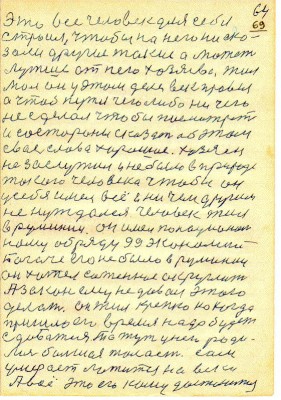 64
69
Это все человек для себя
строил, чтобы на него не ска-
зали другие такие а может
лучше от него хозяева, жил
мол он у этом деле век провел
а чтоб пути чего либо ничего
не сделал чтобы посмотреть
и со стороны сказать об этом
свае слова хорошие. Хозяен
не заслужил и небыло в природе
такого человека чтобы он
у себя имел всё и ни чем другим
не нуждался человек жил
в румынии. он имел по
ному обряду 99 экономий
богаче его не было в румынии
он хотел сотенное округлить
А закон ему не давал этого
делать. он жил крепко но когда
пришло его время надо будет
сдаватся, то тут у него роди-
лся больша сам
умерает ложится на веки
А всё это его кому достанется